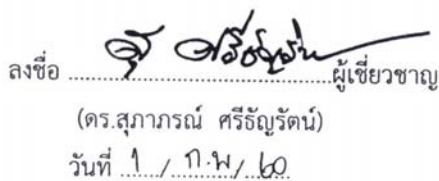 ลงชื่อ ........ ผู้เชี่ยวชาญ
(ดร.สุภาภรณ์ ศรีธัญรัตน์)
วันที่ 1 / ก.พ / 60